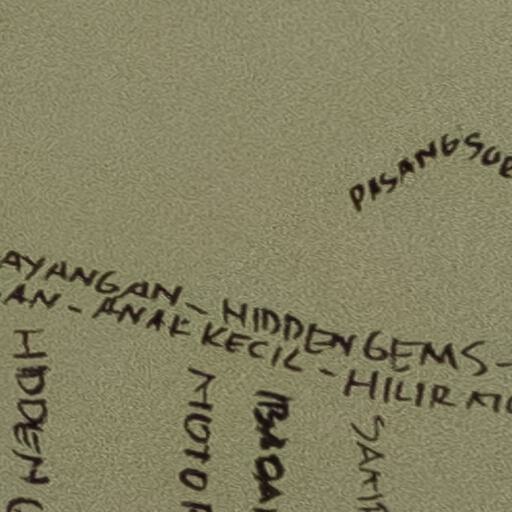 PASANGSUR
AYANGAN - HIDDEN GEMS -
AN - ANAK KECIL - HILIR MU
HIDDEN G
MOTOR
SAKIT